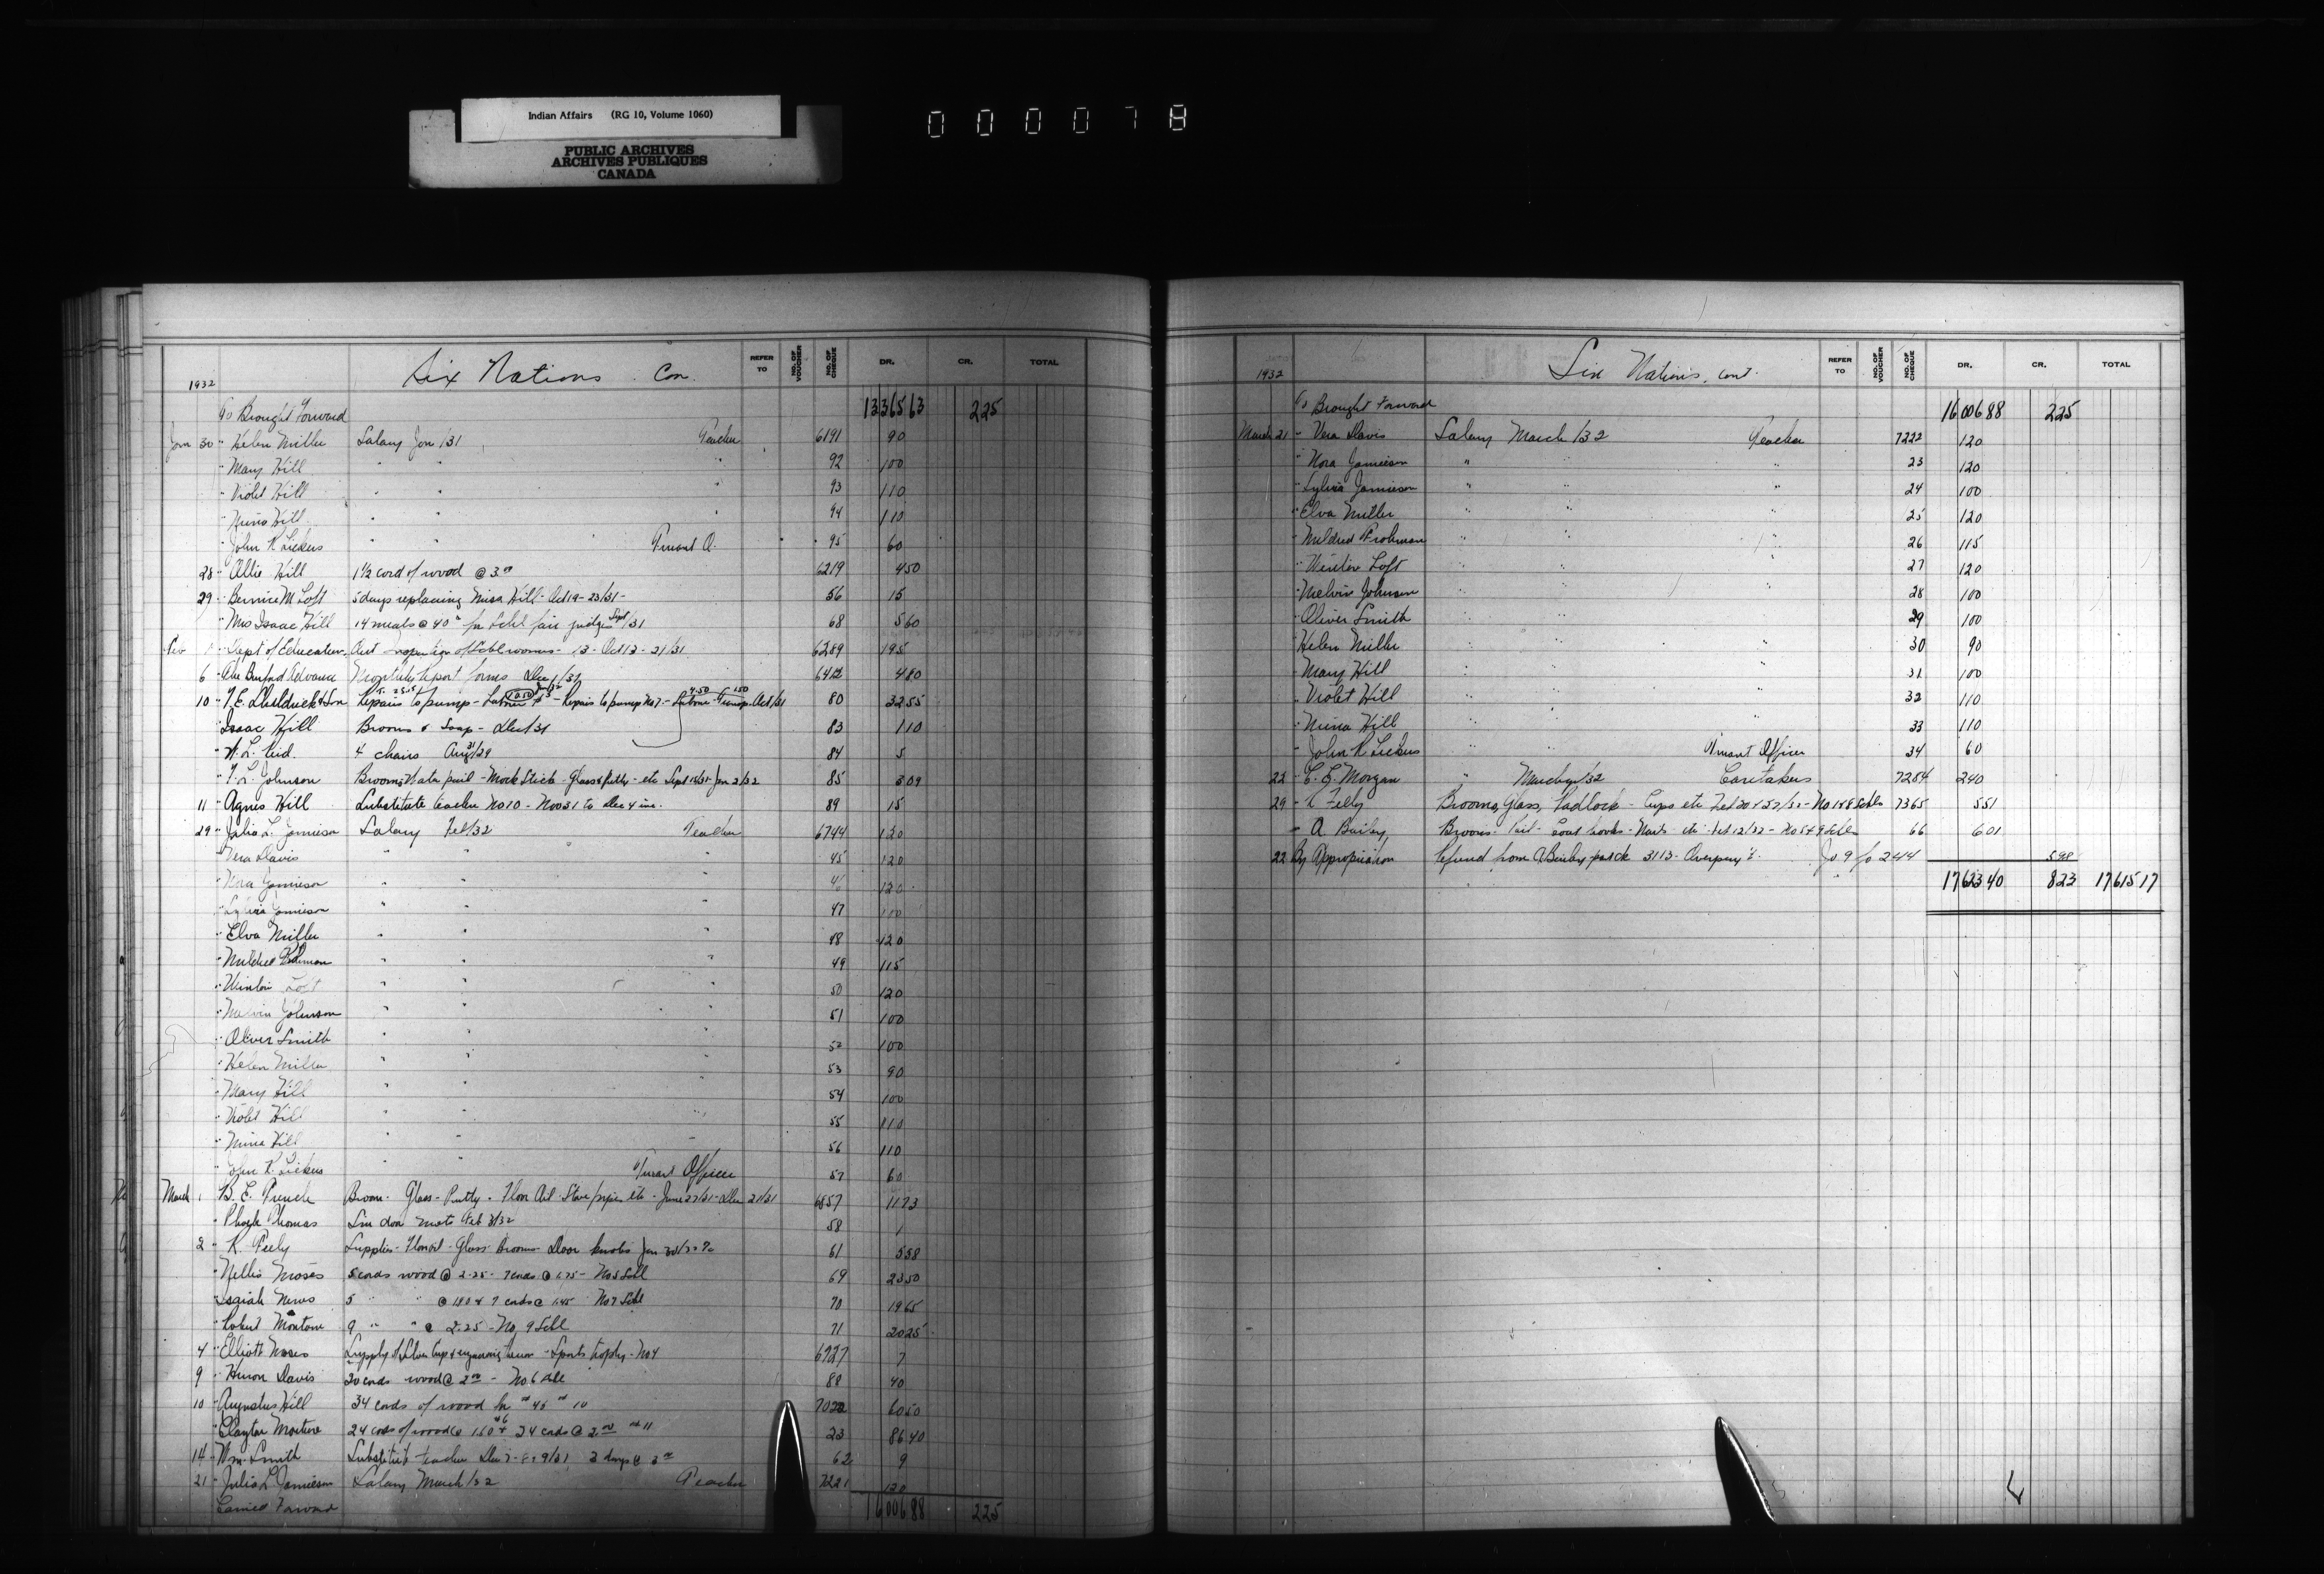 Indian Affairs (RG 10, Volume 1060)
PUBLIC ARCHIVES
ARCHIVES PUBLIQUES
CANADA
000078
Six Nations Con.
REFER TO NO. OF VOUCHER NO. OF CHEQUE DR. CR. TOTAL
1932
To Brought Forward 13365 63 2 25
Jan 30 " Helen Miller Salary Jan /31 Teacher 6191 90
" Mary Hill " " " 92 100
" Violet Hill " " " 93 110
" Mina Hill " " " 94 110
" John R Lickers " " Truant O. 95 60
28 " Allie Hill 1 1/2 cord of wood @ 3.00 6219 4 50
29 " Bernice M Loft 5 days replacing Miss Hill - Oct 19 - 23/31 - 56 15
" Mrs Isaac Hill 14 meals @ 40 ¢ for Schl fair judges Sept/31 68 5 60
Feb 1 " Dept of Education Schlrooms - 13 - Oct 13 - 21/31 6289 195
6 " Advance Monthly report forms Dec 1/31 6412 4 80
10 " & Son Repairs to pump - Labour - Repairs to pump No 7 - Labour 4.50 - Transp. 1.50 Oct/31 80 32 55
Isaac Hill Brooms & Soap - Dec/31 83 1 10
" W. L. Reid. 4 chairs Aug 31/29 84 5
" Johnson Brooms, Water pail - Mock Stick - Glass & Putty - etc Sept 14/31 - Jan 2/32 85 3 09
11 " Agnes Hill Substitute teacher No 10 - Nov 31 to Dec 4 inc. 89 15
29 " Julia L. Jamieson Salary Feb/32 Teacher 6744 120
" Vera Davis " " " 45 120
" Nora Jamieson " " " 46 120
" Sylvia Jamieson " " " 47 100
" Elva Miller " " " 48 120
" Mildred " " " 49 115
" Winter Loft " " " 50 120
" Melvin Johnson " " " 51 100
" Oliver Smith " " " 52 100
" Helen Miller " " " 53 90
" Mary Hill " " " 54 100
" Violet Hill " " " 55 110
" Mina Hill " " " 56 110
John R. Lickers " " Truant Officer 57 60
March 1 B. E. French Broom - Glass - Putty - Floor Oil - Stove pipes etc - June 27/31 - Dec 21/31 6857 11 73
" Thomas Six door mats Feb 3/32 58 1
2 " R. Supplies - Floor oil - Glass - Brooms - Door knobs Jan 30/32 61 5 58
" Nellis Moses 5 cords wood @ 2.25 - 7 cords @ 1.75 - No 5 Schl 69 23 50
" 5 " " @ 1.80 & 7 cords @ 1.45 No 7 Schl 70 19 65
" Robert Monture 9 " " @ 2.25 - No 9 Schl 71 20 25
4 " Elliott Moses Supply of Silver Cup & engraving same - Sports trophy - No 4 6927 7
9 " Huron Davis 20 cords wood @ 2.00 - No. 6 Schl 88 40
10 " Augustus Hill 34 cords of wood for 10 7022 60 50
" Clayton Monture 24 cords of wood @ 1.60 & 24 cords @ 2.00 11 23 86 40
14 " Wm. Smith Substitute teacher Dec 7 - 8 & 9/31, 3 days @ 3.00 62 9
21 " Julia L Jamieson Salary March/32 Teacher 7221 120
Carried Forward 16006 88 2 25
Six Nations, cont.
REFER TO NO. OF VOUCHER NO. OF CHEQUE DR. CR. TOTAL
1932
To Brought Forward 16006 88 2 25
March 21 " Vera Davis Salary March /32 Teacher 7222 120
" Nora Jamieson " " " 23 120
" Sylvia Jamieson " " " 24 100
" Elva Miller " " " 25 120
" Mildred Frohman " " " 26 115
" Winter Loft " " " 27 120
" Melvin Johnson " " " 28 100
" Oliver Smith " " " 29 100
Helen Miller " " " 30 90
" Mary Hill " " " 31 100
" Violet Hill " " " 32 110
" Mina Hill " " " 33 110
" John R Lickers " " Truant Officer 34 60
22 " Morgan " March/32 Caretakers 7284 240
29 " Brooms, Glass, Padlock - Cups etc Feb 20 & 27/32 - No 1 & 8 Schls 7365 5 51
" A Bailey Brooms - Pail - Coat hooks - Nails etc Feb 12/32 - No 5 & 9 Schls 66 6 01
22 By Appropriation Refund from A Bailey part ck 3113 - Overpay't Jo 9 fo 244 5 98
17623 40 8 23 17615 17